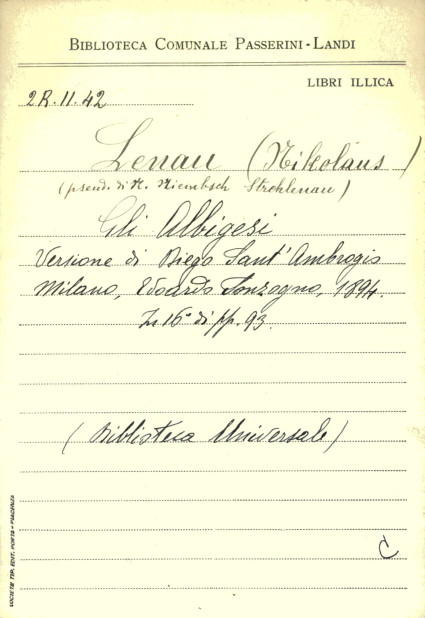 BIBLIOTECA COMUNALE PASSERINI-LANDI
LIBRI ILLICA
2R.11.42
Lenau (Nikolaus)
(pseud. di N. Niembsch Strehlenau)
Gli Albigesi
Versione di Diego Sant'Ambrogio
Milano, Edoardo Sonzogno, 1894.
In 16° di pp. 93.
(Biblioteca Universale)
C
SOCIETÀ TIP. EDIT. PORTA - PIACENZA